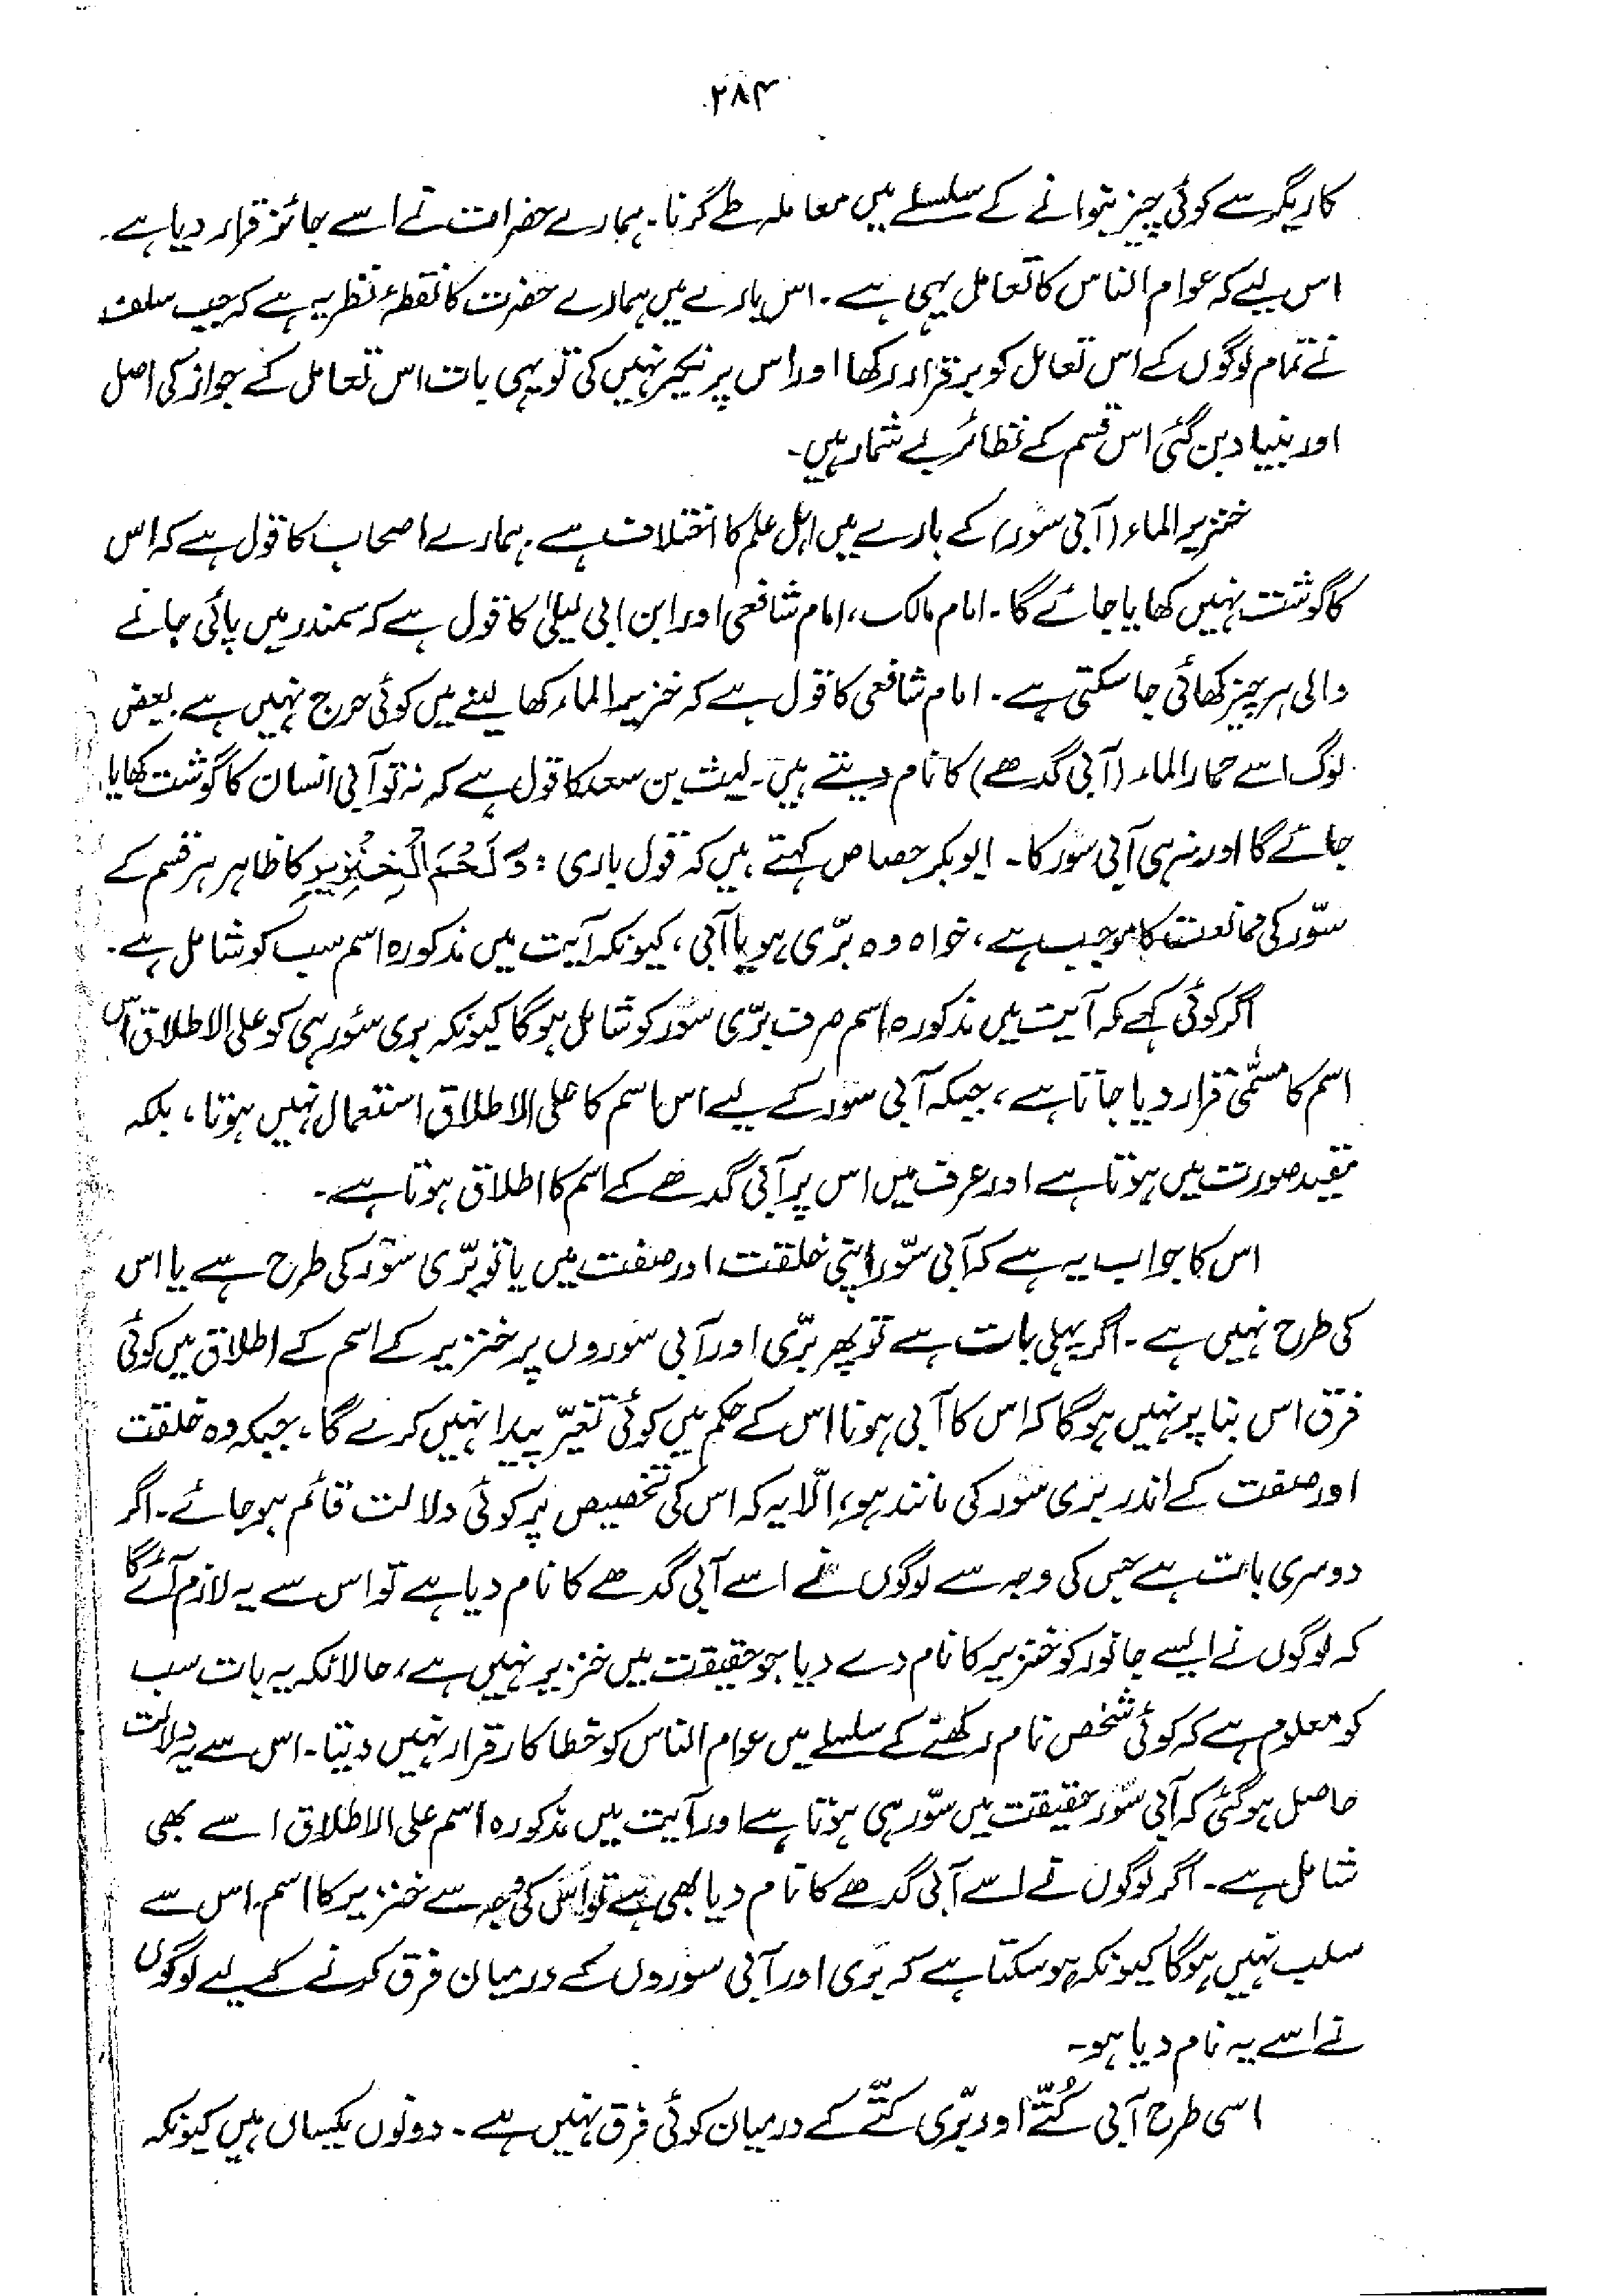 ۲۸۴
کاریگر سے کوئی چیز بنوانے کے سلسلے میں معاملہ طے کرنا۔ ہمارے حضرات نے اسے جائز قرار دیا ہے۔
اس لیے کہ عوام الناس کا تعامل یہی ہے۔ اس بارے میں ہمارے حضرت کا نقطۂ نظر یہ ہے کہ جب سلف
نے تمام لوگوں کے اس تعامل کو برقرار رکھا اور اس پر نکیر نہیں کی تو یہی بات اس تعامل کے جواز کی اصل
اور بنیاد بن گئی اس قسم کے نظائر بے شمار ہیں۔
خنزیر الماء (آبی سور) کے بارے میں اہل علم کا اختلاف ہے۔ ہمارے اصحاب کا قول ہے کہ اس
کا گوشت نہیں کھایا جائے گا۔ امام مالک، امام شافعی اور ابن ابی لیلیٰ کا قول ہے کہ سمندر میں پائی جانے
والی ہر چیز کھائی جا سکتی ہے۔ امام شافعی کا قول ہے کہ خنزیر الماء کھا لینے میں کوئی حرج نہیں ہے بعض
لوگ اسے حمار الماء (آبی گدھے) کا نام دیتے ہیں۔ لیث بن سعد کا قول ہے کہ نہ تو آبی انسان کا گوشت کھایا
جائے گا اور نہ ہی آبی سور کا۔ ابوبکر جصاص کہتے ہیں کہ قول باری : وَلَحْمَ الْخِنْزِيرِ کا ظاہر ہر قسم کے
سوّر کی ممانعت کا موجب ہے، خواہ وہ برّی ہو یا آبی، کیونکہ آیت میں مذکورہ اسم سب کو شامل ہے۔
اگر کوئی کہے کہ آیت میں مذکورہ اسم صرف برّی سور کو شامل ہوگا کیونکہ بری سؤر ہی کو علی الاطلاق اس
اسم کا مسمّٰی قرار دیا جاتا ہے، جبکہ آبی سور کے لیے اس اسم کا علی الاطلاق استعمال نہیں ہوتا، بلکہ
مقید صورت میں ہوتا ہے اور عرف میں اس پر آبی گدھے کے اسم کا اطلاق ہوتا ہے۔
اس کا جواب یہ ہے کہ آبی سوّر اپنی خلقت اور صفت میں یا تو برّی سور کی طرح ہے یا اس
کی طرح نہیں ہے۔ اگر پہلی بات ہے تو پھر برّی اور آبی سوروں پر خنزیر کے اسم کے اطلاق میں کوئی
فرق اس بنا پر نہیں ہوگا کہ اس کا آبی ہونا اس کے حکم میں کوئی تغیّر پیدا نہیں کرے گا، جبکہ وہ خلقت
اور صفت کے اندر بری سور کی مانند ہو، الّا یہ کہ اس کی تخصیص پر کوئی دلالت قائم ہو جائے۔ اگر
دوسری بات ہے جس کی وجہ سے لوگوں نے اسے آبی گدھے کا نام دیا ہے تو اس سے یہ لازم آئے گا
کہ لوگوں نے ایسے جانور کو خنزیر کا نام دے دیا جو حقیقت میں خنزیر نہیں ہے، حالانکہ یہ بات سب
کو معلوم ہے کہ کوئی شخص نام رکھنے کے سلسلے میں عوام الناس کو خطا کار قرار نہیں دیتا۔ اس سے یہ دلالت
حاصل ہو گئی کہ آبی سوّر حقیقت میں سوّر ہی ہوتا ہے اور آیت میں مذکورہ اسم علی الاطلاق اسے بھی
شامل ہے۔ اگر لوگوں نے اسے آبی گدھے کا نام دیا بھی ہے تو اس کی وجہ سے خنزیر کا اسم اس سے
سلب نہیں ہوگا کیونکہ ہو سکتا ہے کہ بری اور آبی سوروں کے درمیان فرق کرنے کے لیے لوگوں
نے اسے یہ نام دیا ہو۔
اسی طرح آبی کُتّے اور برّی کتّے کے درمیان کوئی فرق نہیں ہے۔ دونوں یکساں ہیں کیونکہ